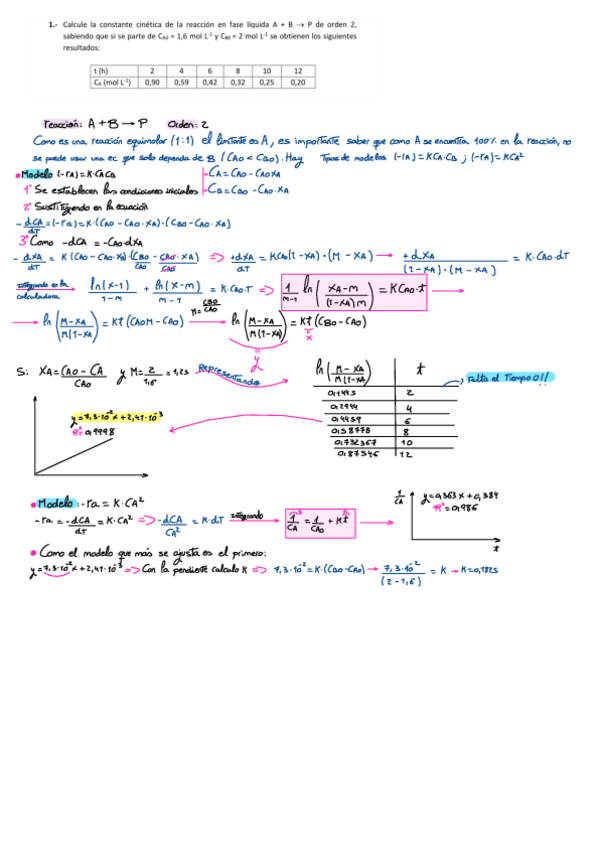 1.- Calcule la constante cinética de la reacción en fase líquida A + B → P de orden 2,
sabiendo que si se parte de CA0 = 1,6 mol L-1 y CB0 = 2 mol L-1 se obtienen los siguientes
resultados:
t (h) 2 4 6 8 10 12
CA (mol L-1) 0,90 0,59 0,42 0,32 0,25 0,20
reacción: A + B → P Orden: 2
Como es una reacción equimolar (1:1) el limitante es A, es importante saber que como A se encuentra 100% en la reacción, no
se puede usar una ec que solo dependa de B (CA0 < CB0). Hay Tipos de modelos (-rA) = KCA·CB ; (-rA) = KCA²
• Modelo (-ra) = K·CACB
-CA = CA0 - CA0XA
1º Se establecen las condiciones iniciales
-CB = CB0 - CA0·XA
2º Sustituyendo en la ecuación
-dCA/dT = (-ra) = K·(CA0 - CA0·XA)·(CB0 - CA0·XA)
3º Como -dCA = -CA0·dXA
-dXA/dT = K (CA0 - CA0·XA)·(CB0/CA0 - CA0·XA/CA0) => +dXA/dT = KCA0(1-XA)·(M-XA) → +dXA/(1-XA)·(M-XA) = K·CA0·dT
integrando en la calculadora → ln(x-1)/1-M + ln(x-M)/M-1 = K·CA0·T => 1/M-1 ln(XA-M/(1-XA)M) = KCA0·t →
M = CB0/CA0
→ ln(M-XA/M(1-XA)) = Kt(CA0M - CA0) → ln(M-XA/M(1-XA)) = Kt(CB0 - CA0)
y x
Si XA = (CA0 - CA)/CA0 y M = 2/1,6 = 1,25 Representando
ln(M-XA/M(1-XA)) t
Falta el Tiempo 0!!
0,1493 2
0,2944 4
0,4459 6
0,58778 8
0,732367 10
0,87546 12
y = 7,3·10-2 x + 2,41·10-3
R² = 0,9998
• Modelo: -ra = K·CA²
-ra = -dCA/dT = K·CA² => -dCA/CA² = K·dT integrando → 1/CA = 1/CA0 + Kt →
1/CA
y = 0,363x + 0,384
R² = 0,986
t
• Como el modelo que más se ajusta es el primero:
y = 7,3·10-2 x + 2,41·10-3 => Con la pendiente calculo K => 7,3·10-2 = K·(CB0 - CA0) → 7,3·10-2/(2-1,6) = K → K = 0,1825